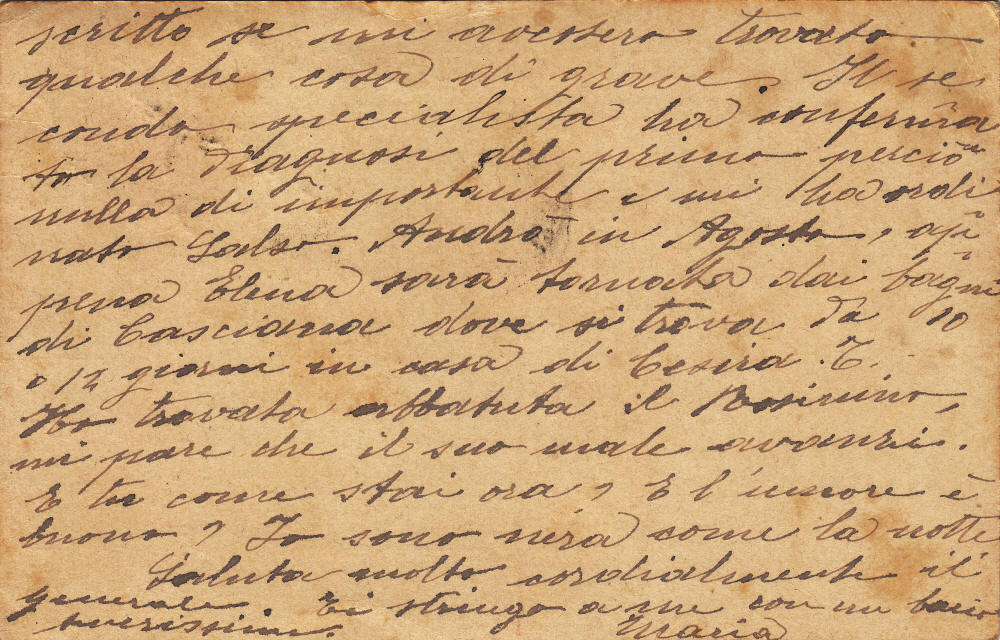 scritto se mi avessero trovato
qualche cosa di grave. Il se
condo specialista ha conferma
to la diagnosi del primo perciò
nulla di importante e mi ha ordi
nato Salso. Andrò in Agosto, ap
pena Elena sarà tornata dai bagni
di Casciana dove si trova da 10
o 12 giorni in casa di Cesira. T.
Ho trovata abbatuta il
mi pare che il suo male avanzi.
E tu come stai ora? E l'umore è
buono? Io sono nera come la notte
Saluta molto cordialmente il
generale. Ti stringo a me con un bacio
Maria